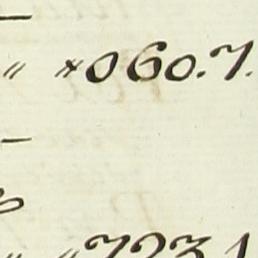 〃 *060.7.
〃 〃7231